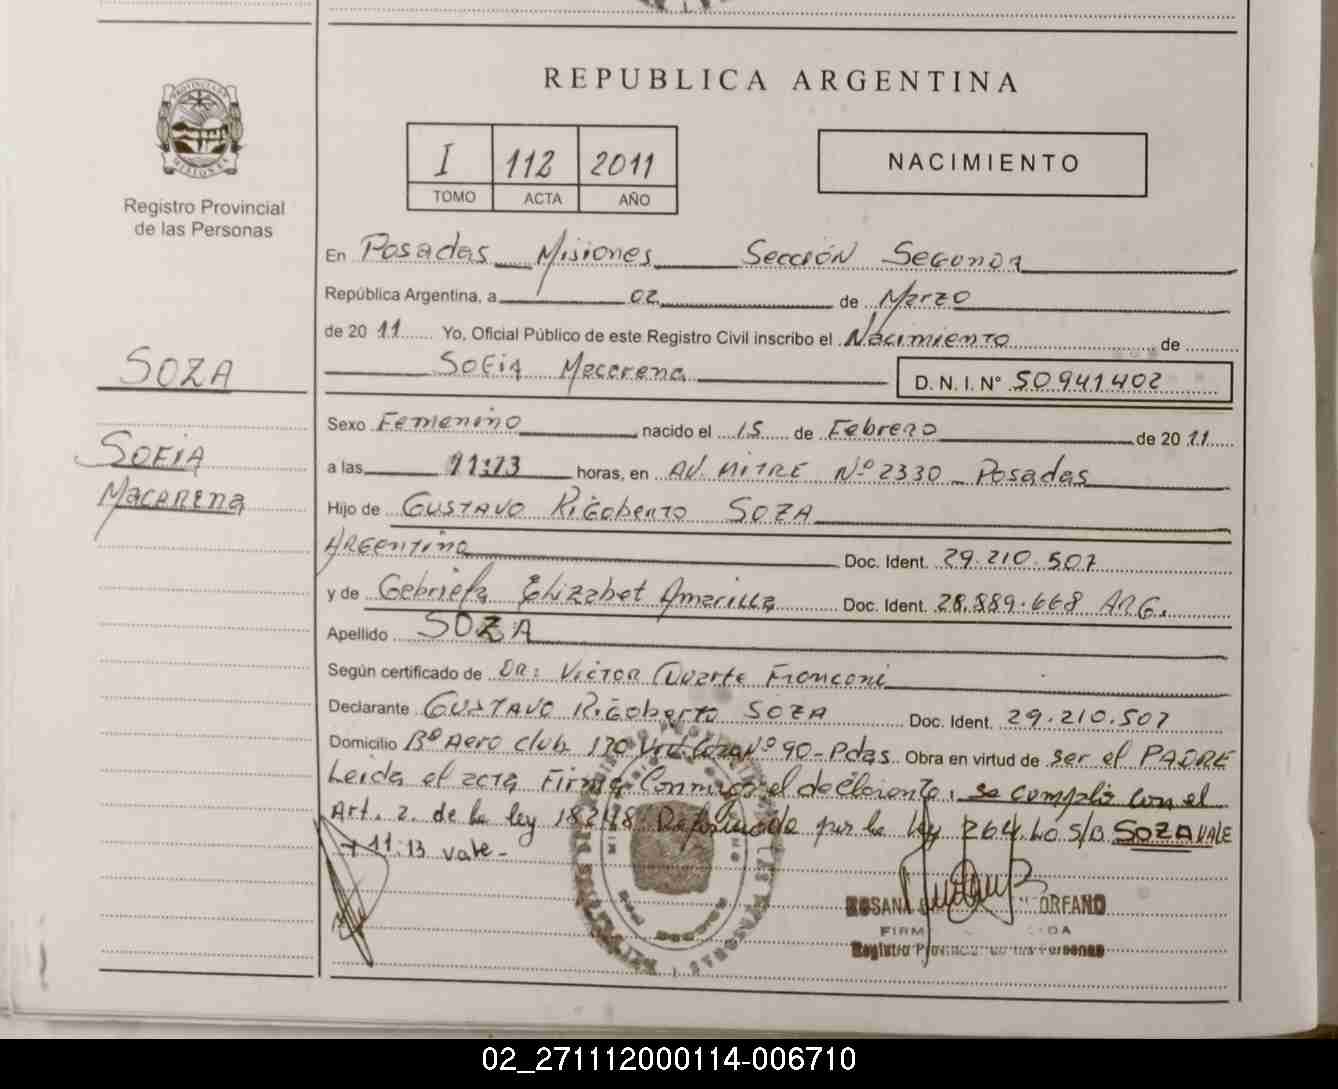 REPUBLICA ARGENTINA
Registro Provincial
de las Personas
I 112 2011
TOMO ACTA AÑO
NACIMIENTO
SOZA
SOFIA
MACARENA
En Posadas Misiones Sección Segunda
República Argentina, a 02 de Marzo
de 2011 Yo, Oficial Público de este Registro Civil inscribo el Nacimiento de
Sofia Macarena D. N. I. N° 50941402
Sexo Femenino nacido el 15 de Febrero de 2011
a las 11:13 horas, en AV. MITRE Nº 2330 Posadas
Hijo de GUSTAVO RiGobento SOZA
ARGENTINO Doc. Ident. 29.210.507
y de Gabriela Elizabet Amarilla Doc. Ident. 28.889.668 ARG.
Apellido SOZA
Según certificado de DR: Victor Duarte Franconi
Declarante GUSTAVO RiGoberto SOZA Doc. Ident. 29.210.507
Domicilio Bº Aero club 170 Nº 90-Pdas. Obra en virtud de ser el PADRE
Leida el acta Firma Conmigo el declarante, se cumpló con el
Art. 2. de la ley 18248 por la ley 264 S/D SOZA VALE
11:13 vale-
ROSANA ORFANO
Registro
02_271112000114-006710